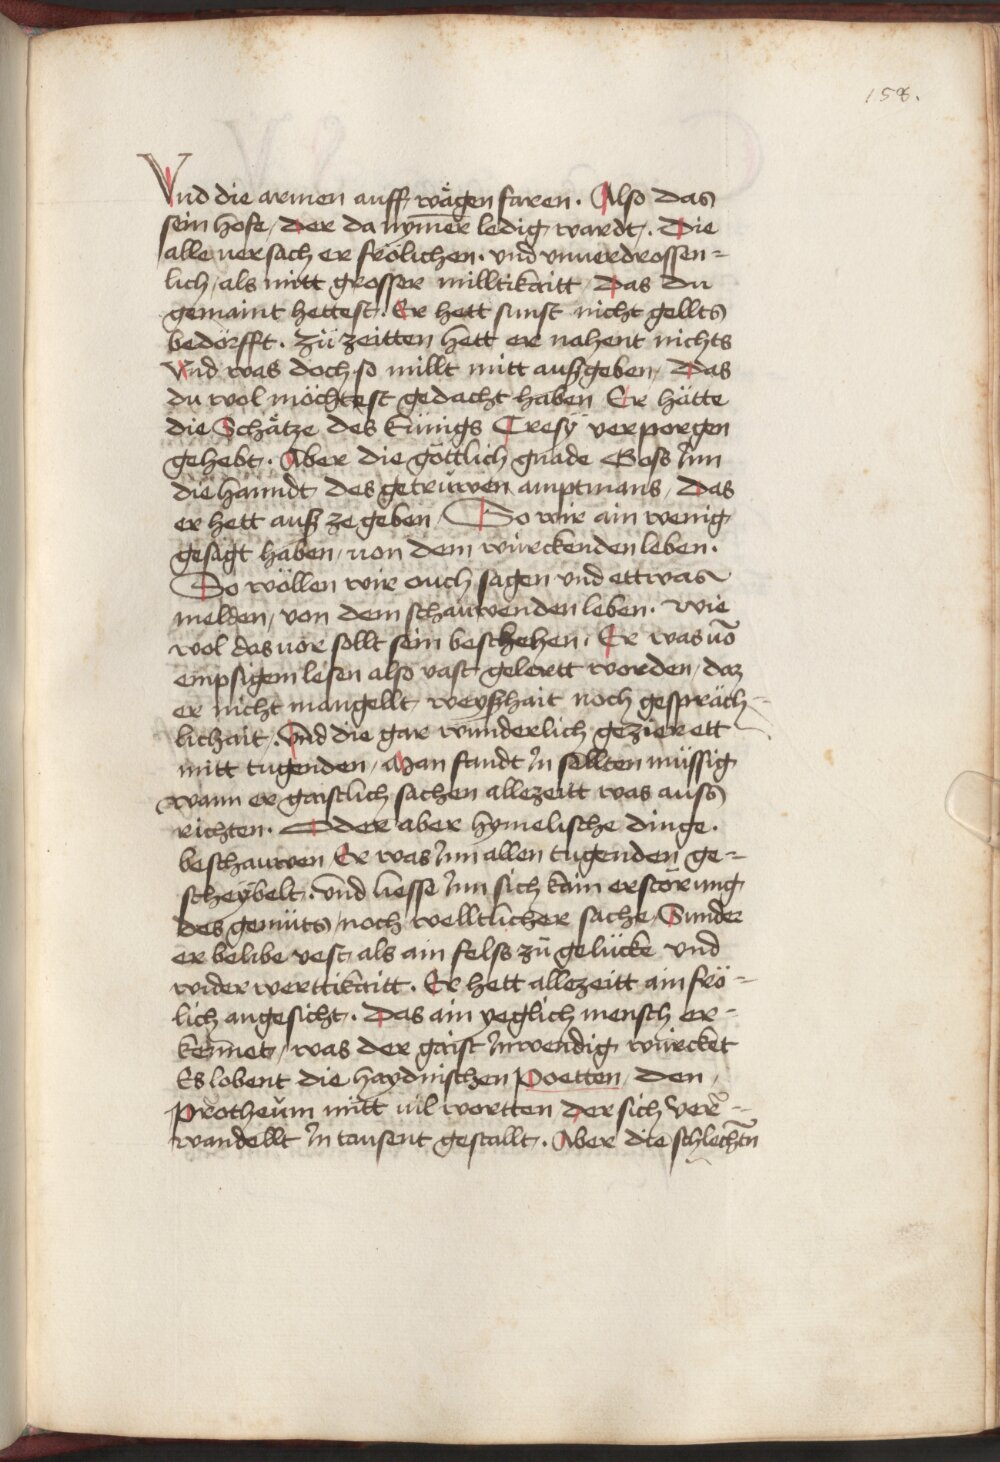 158.
Vnd die armen auff wägen faren. Also das
sein hofe, der da nym̄er ledig wardt. Die
alle versach er frölichen. vnd vnuerdrossen=
lich, als mitt grosser milltikaitt, Das du
gemaint hettest. Er hett sunst nicht gellts
bedörfft. Zů zeitten hett er nahent nichts
Vnd was doch so millt mitt außgeben, Das
du wol möchtest gedacht haben Er hätte
die Schätze des künigs Cresÿ verporgen
gehebt. Aber die göttlich gnade Goss Inn
die hanndt des getrüwen amptmans, Das
er hett auß ze geben, So wir ain wenig
gesagt haben, von dem würckenden leben.
So wöllen wir ouch sagen vnd ettwas
melden, von dem schauwenden leben. Wie
wol das vor sollt sein beschehen. Er was vō
empsigem lesen also vast gelertt worden, daz
er nicht mangellt weyßhait noch gespräch=
lichait. Vnd die gar wunderlich gezierett
mitt tugenden, Man fandt In sellten müssig
wann er gaistlich sachen allezeitt was auss
richten. Oder aber hymelische dinge.
beschauwen Er was Inn allen tugenden ge=
scheybelt. vnd liesse Inn sich kain erstörung
des gemüts, noch welltlicher sache, Sunder
er belibe vest als ain felss zů gelücke vnd
widerwerttikaitt. Er hett allezeitt ain frö=
lich angesicht. Das ain yeglich mensch er=
kenn̄et, was der gaist Inwendig würcket
Es lobent die haydnischen Poetten, den,
Protheům mitt vil wortten der sich ver=
wandellt In tausent gestallt. Aber die schlechtn̄